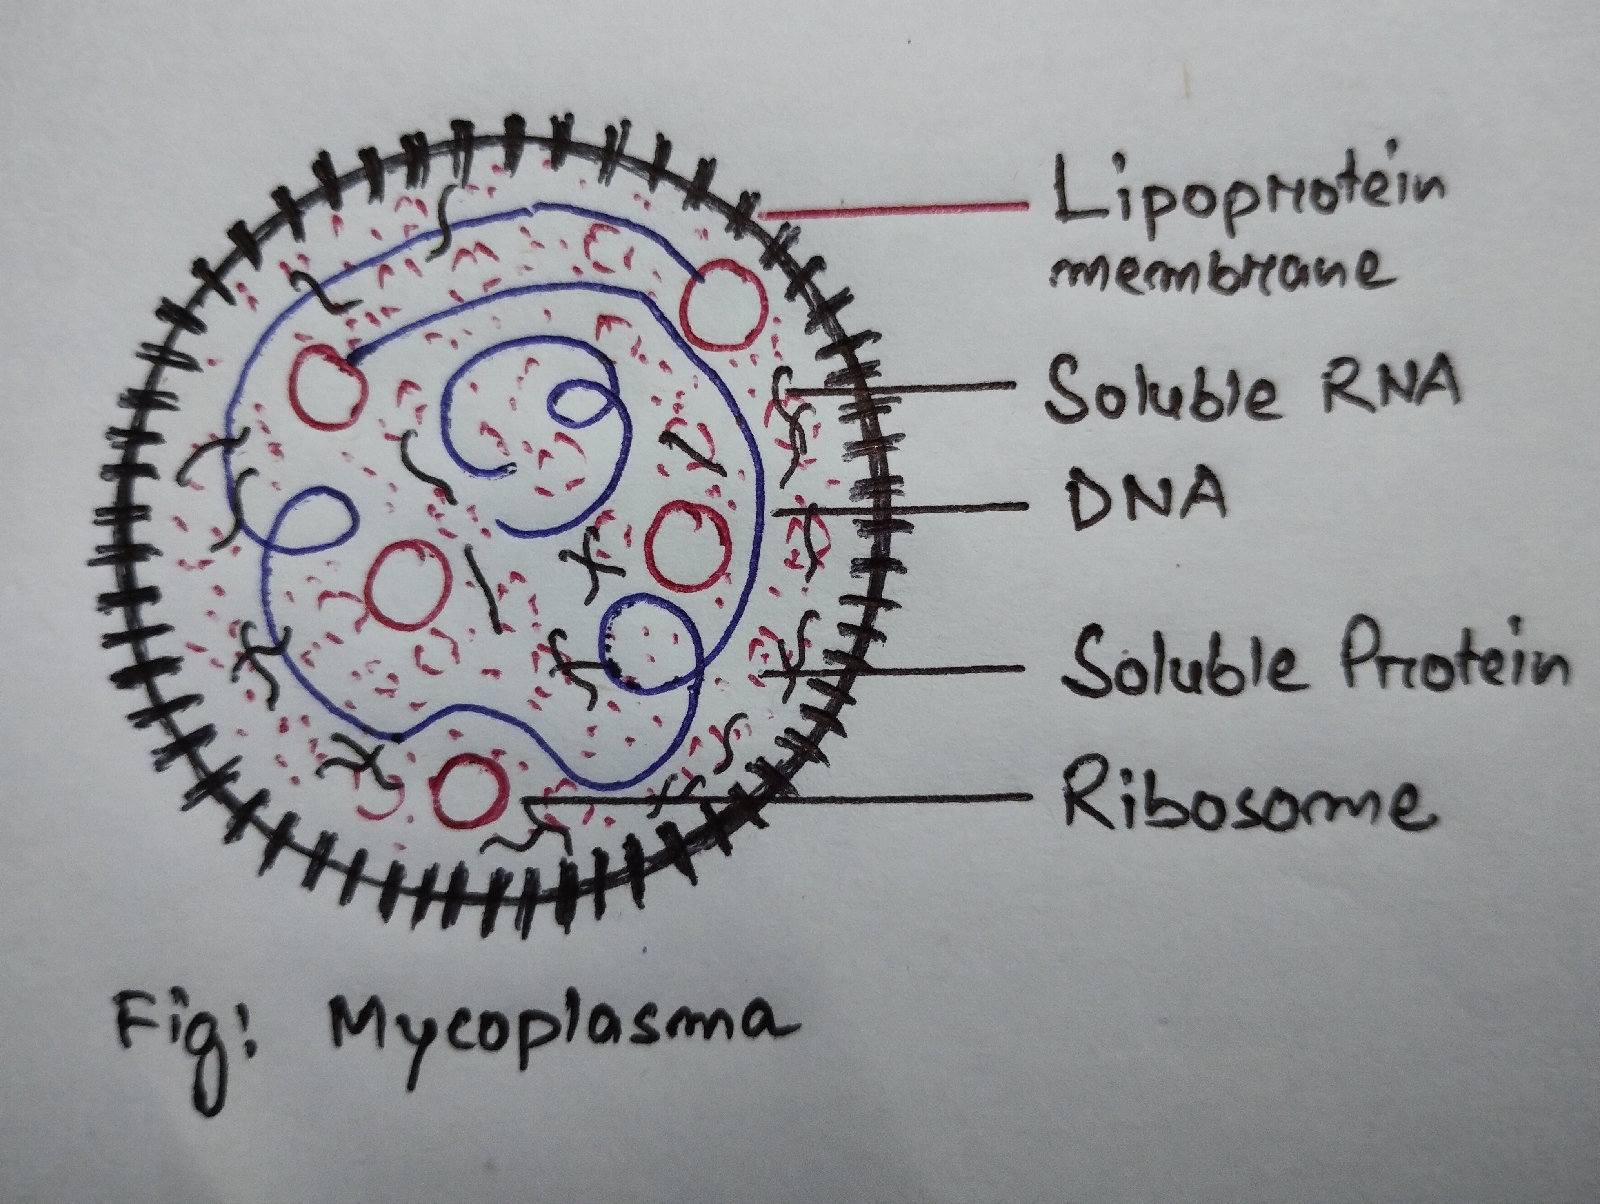 Lipoprotein
membrane
Soluble RNA
DNA
Soluble Protein
Ribosome
Fig: Mycoplasma